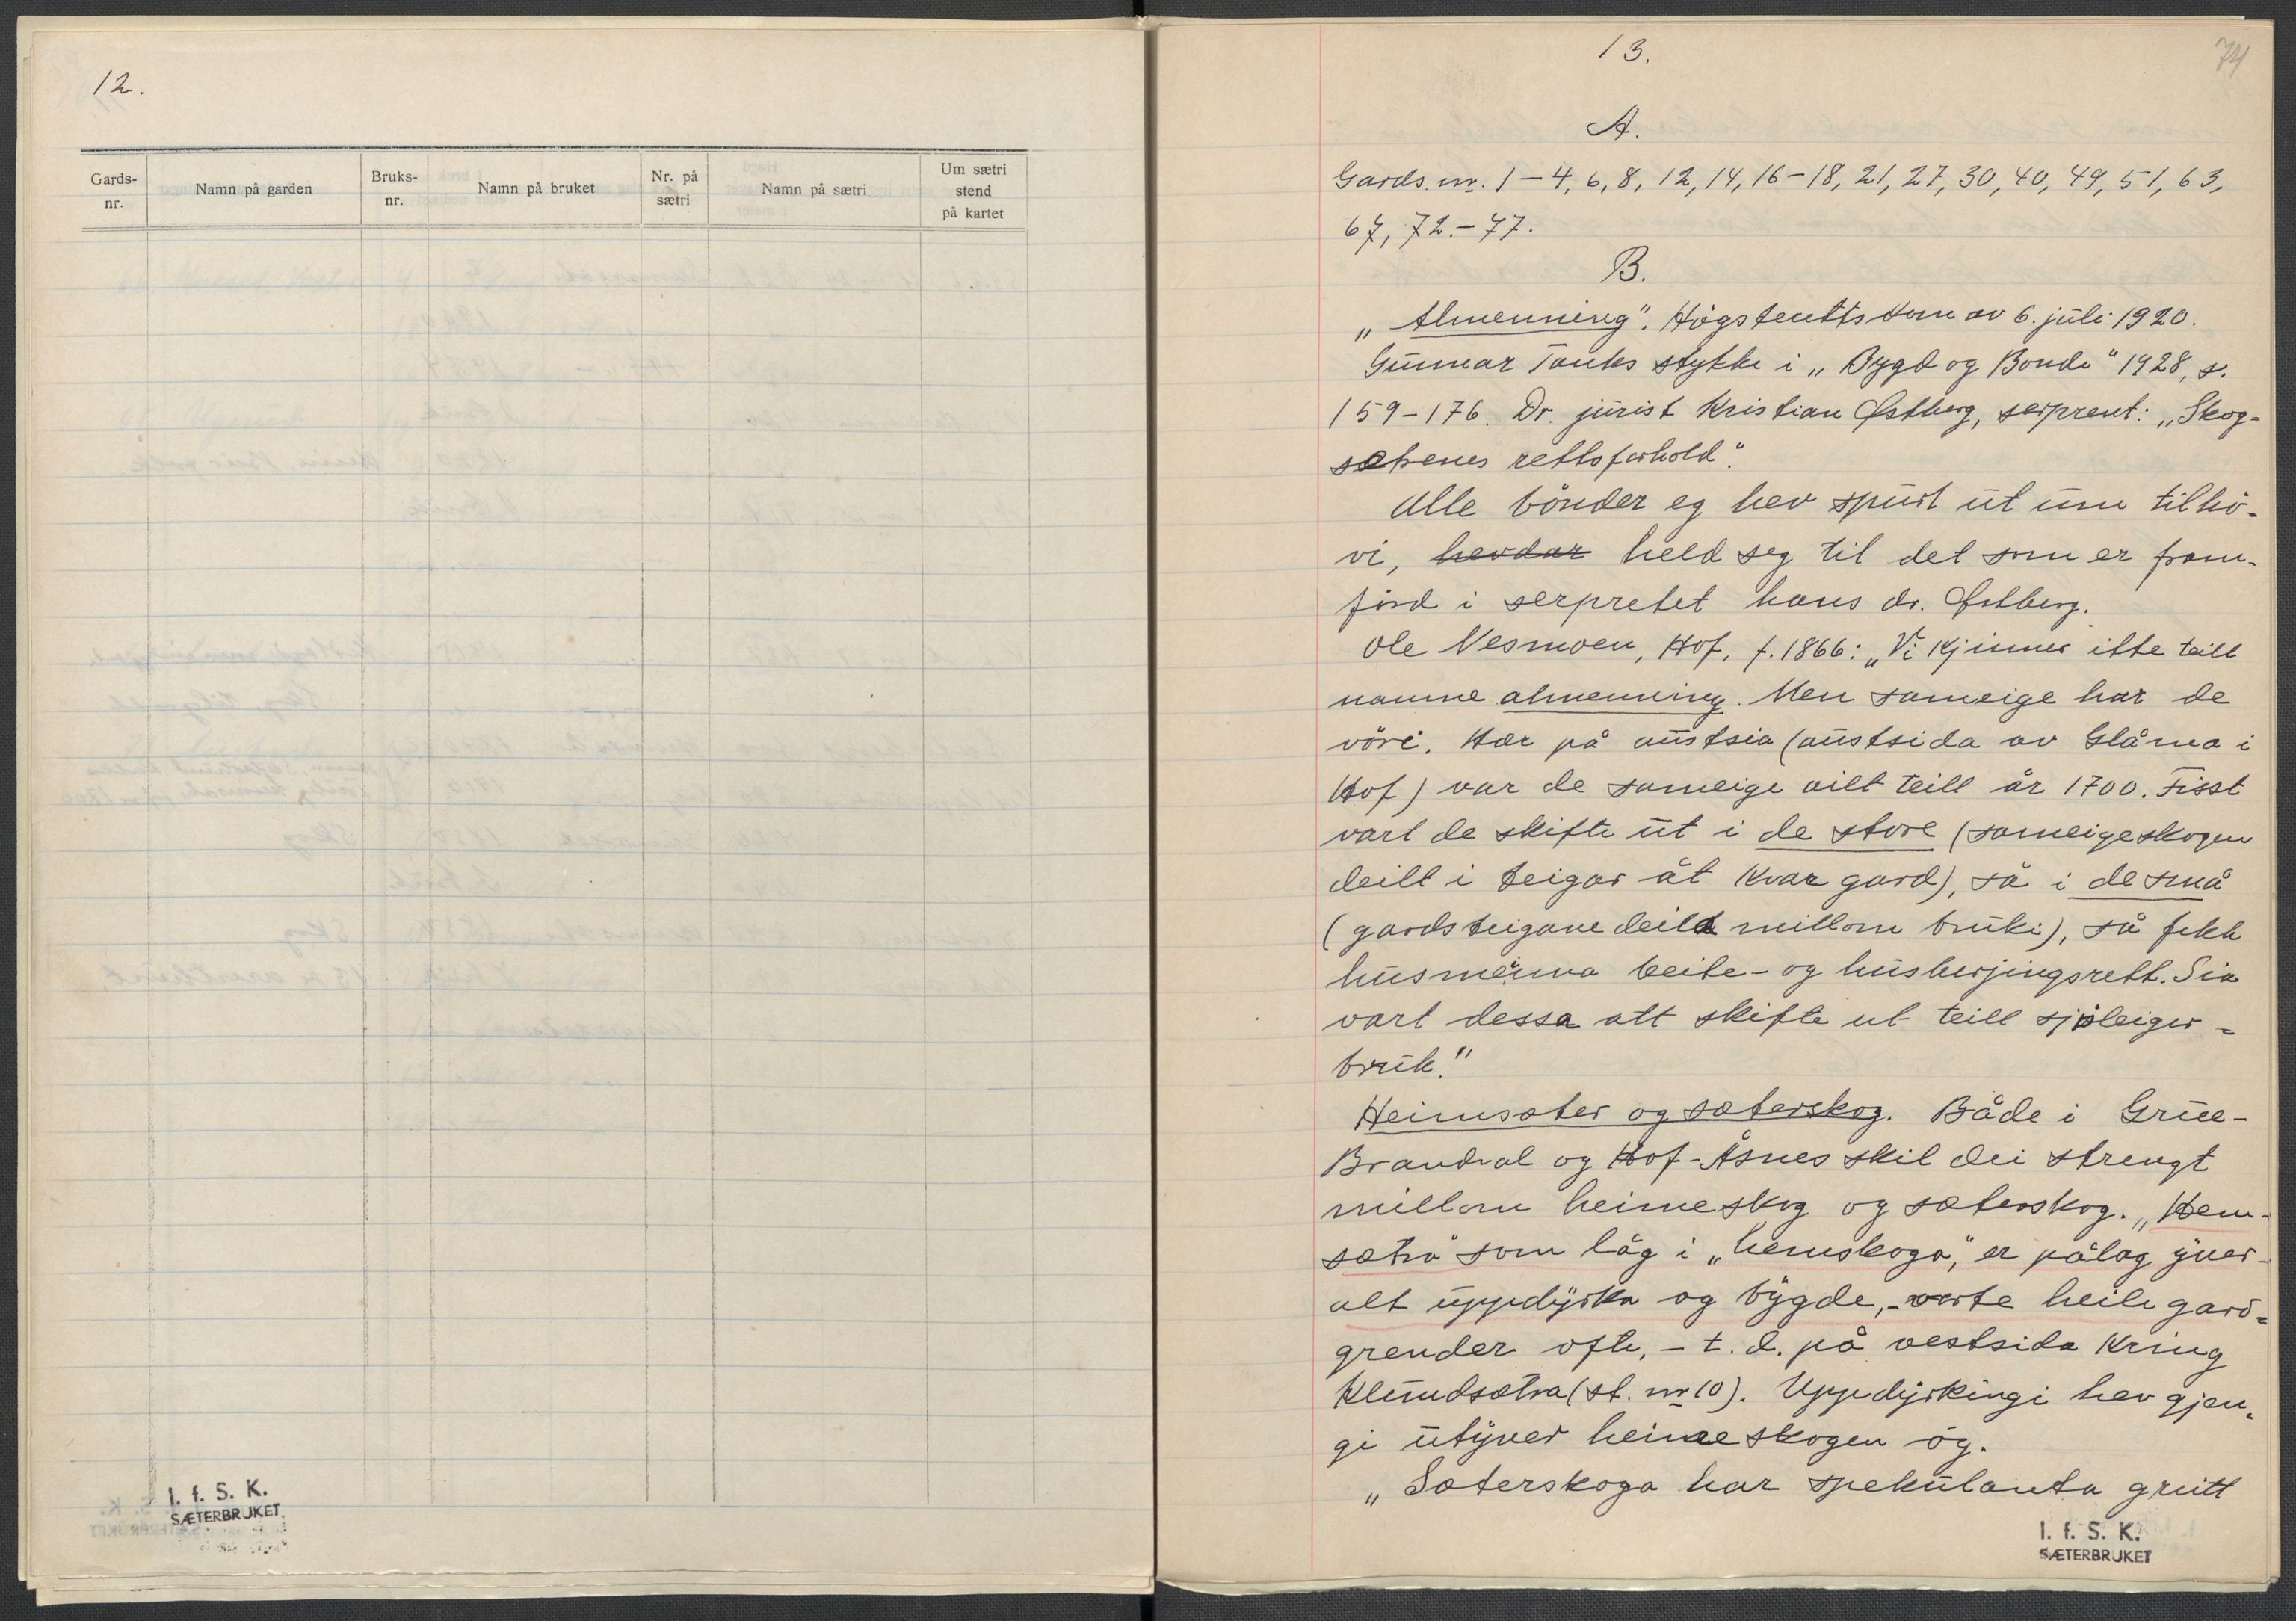 12.
Gards-
nr.
Namn på garden
Bruks-
nr.
Namn på bruket
Nr. på
sætri
Namn på sætri
Um sætri
stend
på kartet
I. f. S. K.
SÆTERBRUKET
13.
74
A.
Gards. nr. 1-4, 6, 8, 12, 14, 16-18, 21, 27, 30, 40, 49, 51, 63,
67, 72.-77.
B.
„Almenning". Høgsterettsdom av 6. juli 1920.
Gunnar Tanks stykke i „Bygd og Bonde" 1928, s.
159-176. Dr. jurist Kristian Østberg, serprent: „Skog-
sakenes rettsforhold".
Alle bönder eg hev spurt ut um tilhö-
vi, hevdar held seg til det som er fram-
förd i serpretet hans dr. Østberg.
Ole Nesmoen, Hof, f. 1866: „Vi kjinner itte teill
namne almenning. Men sameige har de
vöri. Hær på austsia (austsida av Glåma i
Hof) var de sameige ailt teill år 1700. Fisst
vart de skifte ut i de store (sameigeskogen
deilt i teigar åt kvar gard), så i de små
(gardsteigane deild millom bruki), så fekk
husmenna beite- og husberjingsrett. Sia
vart dessa att skifte ut teill sjøleiger-
bruk."
Heimsæter og sæterskog. Både i Grue-
Brandval og Hof-Åsnes skil dei strengt
millom heimeskog og sæterskog. „Hem-
sætra" som låg i „hemskoga", er pålag yver-
alt uppdyrka og bygde, - vorte heile gard-
grender ofte, - t. d. på vestsida kring
Klundsætra (st. nr 10). Uppdyrkingi hev gjen-
gi utyver heimeskogen òg.
„Sæterskoga har spekulanta gruitt
I. f. S. K.
SÆTERBRUKET